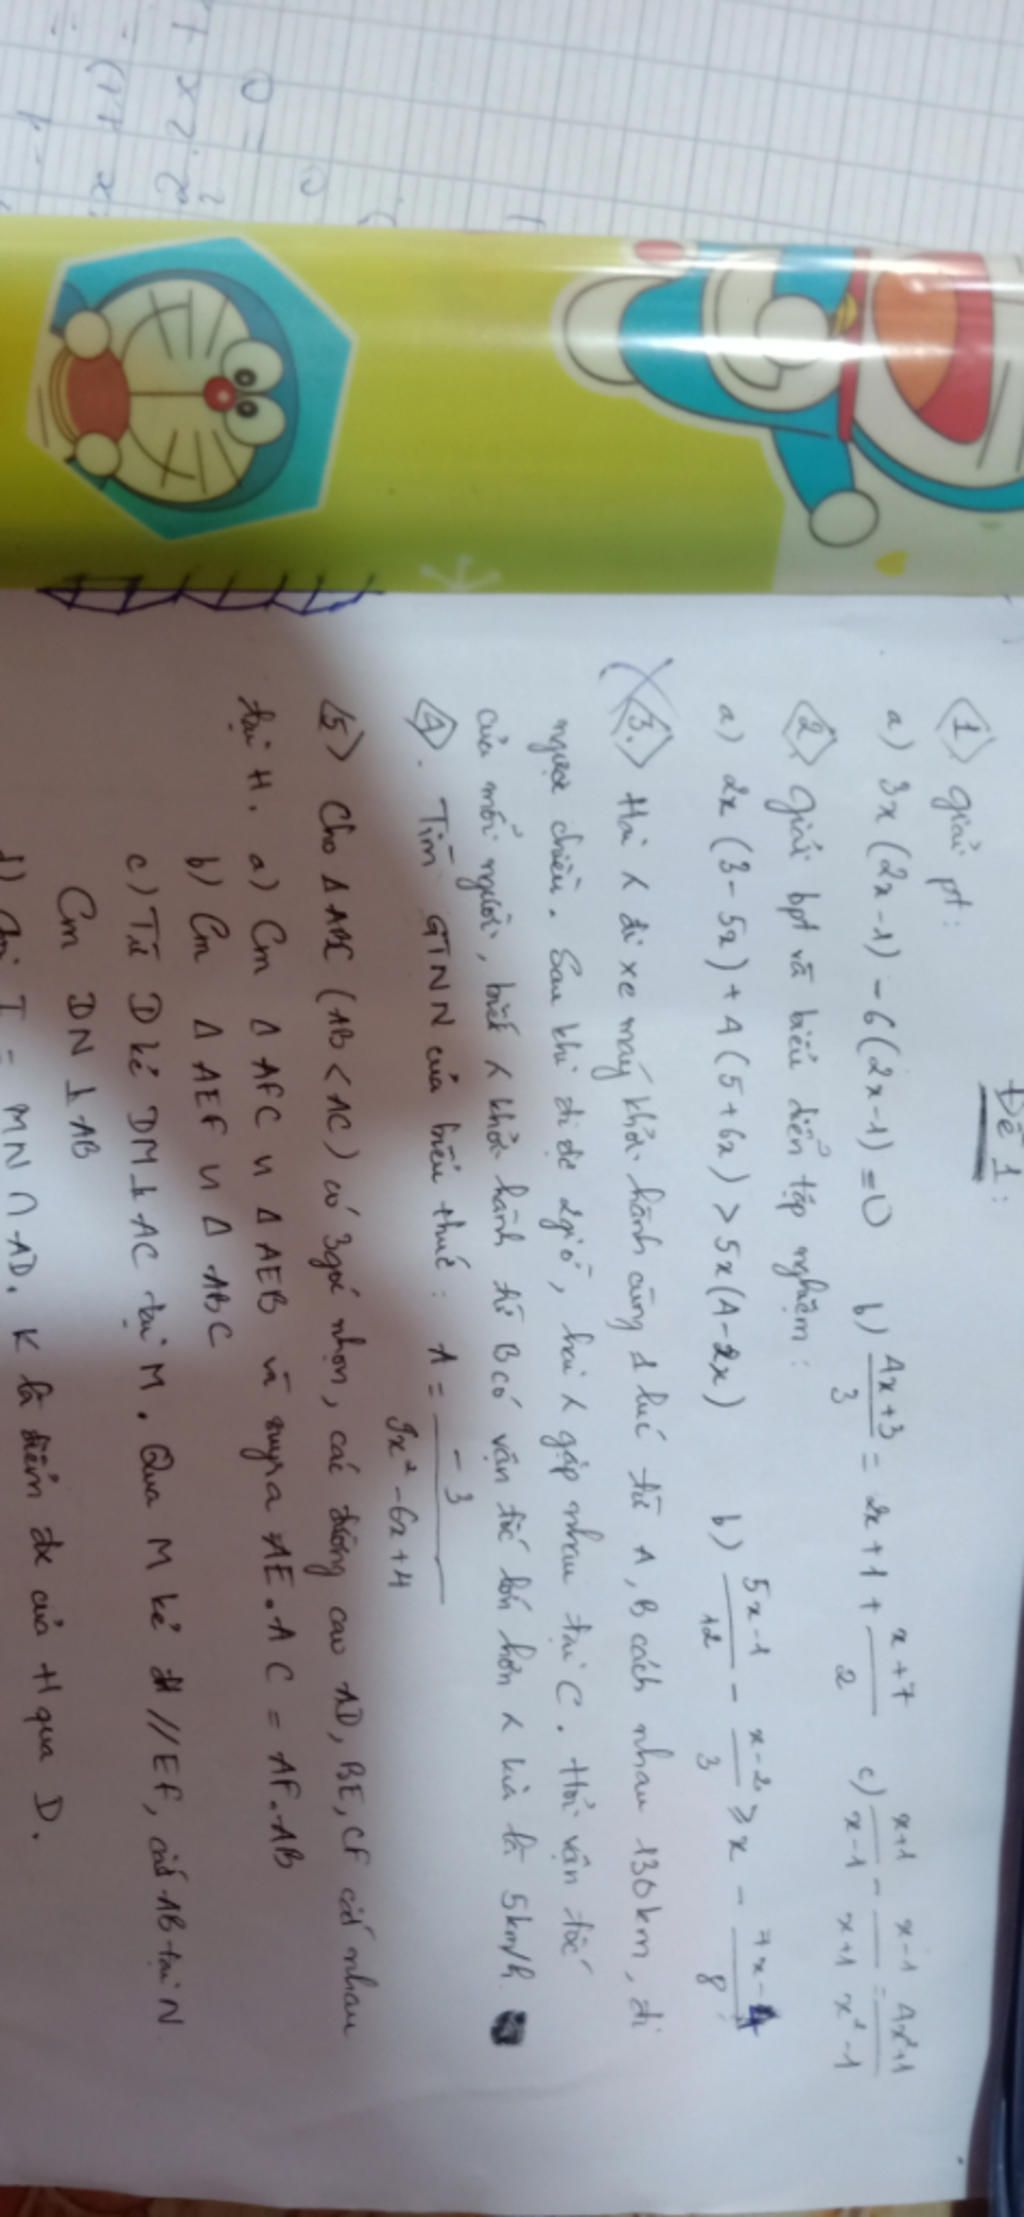 Đề 1:
<1> Giải pt:
a) 3x(2x-1) - 6(2x-1) = 0 b) 4x+3/3 = 2x+1 + x+7/2 c) x+1/x-1 - x-1/x+1 = 4x²+1/x²-1
<2> Giải bpt và biểu diễn tập nghiệm:
a) 2x(3-5x) + 4(5+6x) > 5x(4-2x) b) 5x-1/12 - x-2/3 ≥ x - 7x-4/8
<3.> Hai λ đi xe máy khởi hành cùng 1 lúc từ A, B cách nhau 130km, đi
ngược chiều. Sau khi đi đc 2giờ, hai λ gặp nhau tại C. Hỏi vận tốc
của mỗi người, biết λ khởi hành từ B có vận tốc lớn hơn λ kia là 5km/h.
<4>. Tìm GTNN của biểu thức: A = -3/9x²-6x+4
<5> Cho Δ ABC (AB < AC) có 3góc nhọn, các đường cao AD, BE, CF cắt nhau
tại H. a) Cm Δ AFC ᔕ Δ AEB và suy ra AE.AC = AF.AB
b) Cm Δ AEF ᔕ Δ ABC
c) Từ D kẻ DM ⊥ AC tại M. Qua M kẻ // EF, cắt AB tại N
Cm DN ⊥ AB
d) I = MN ∩ AD. K là điểm đx của H qua D.